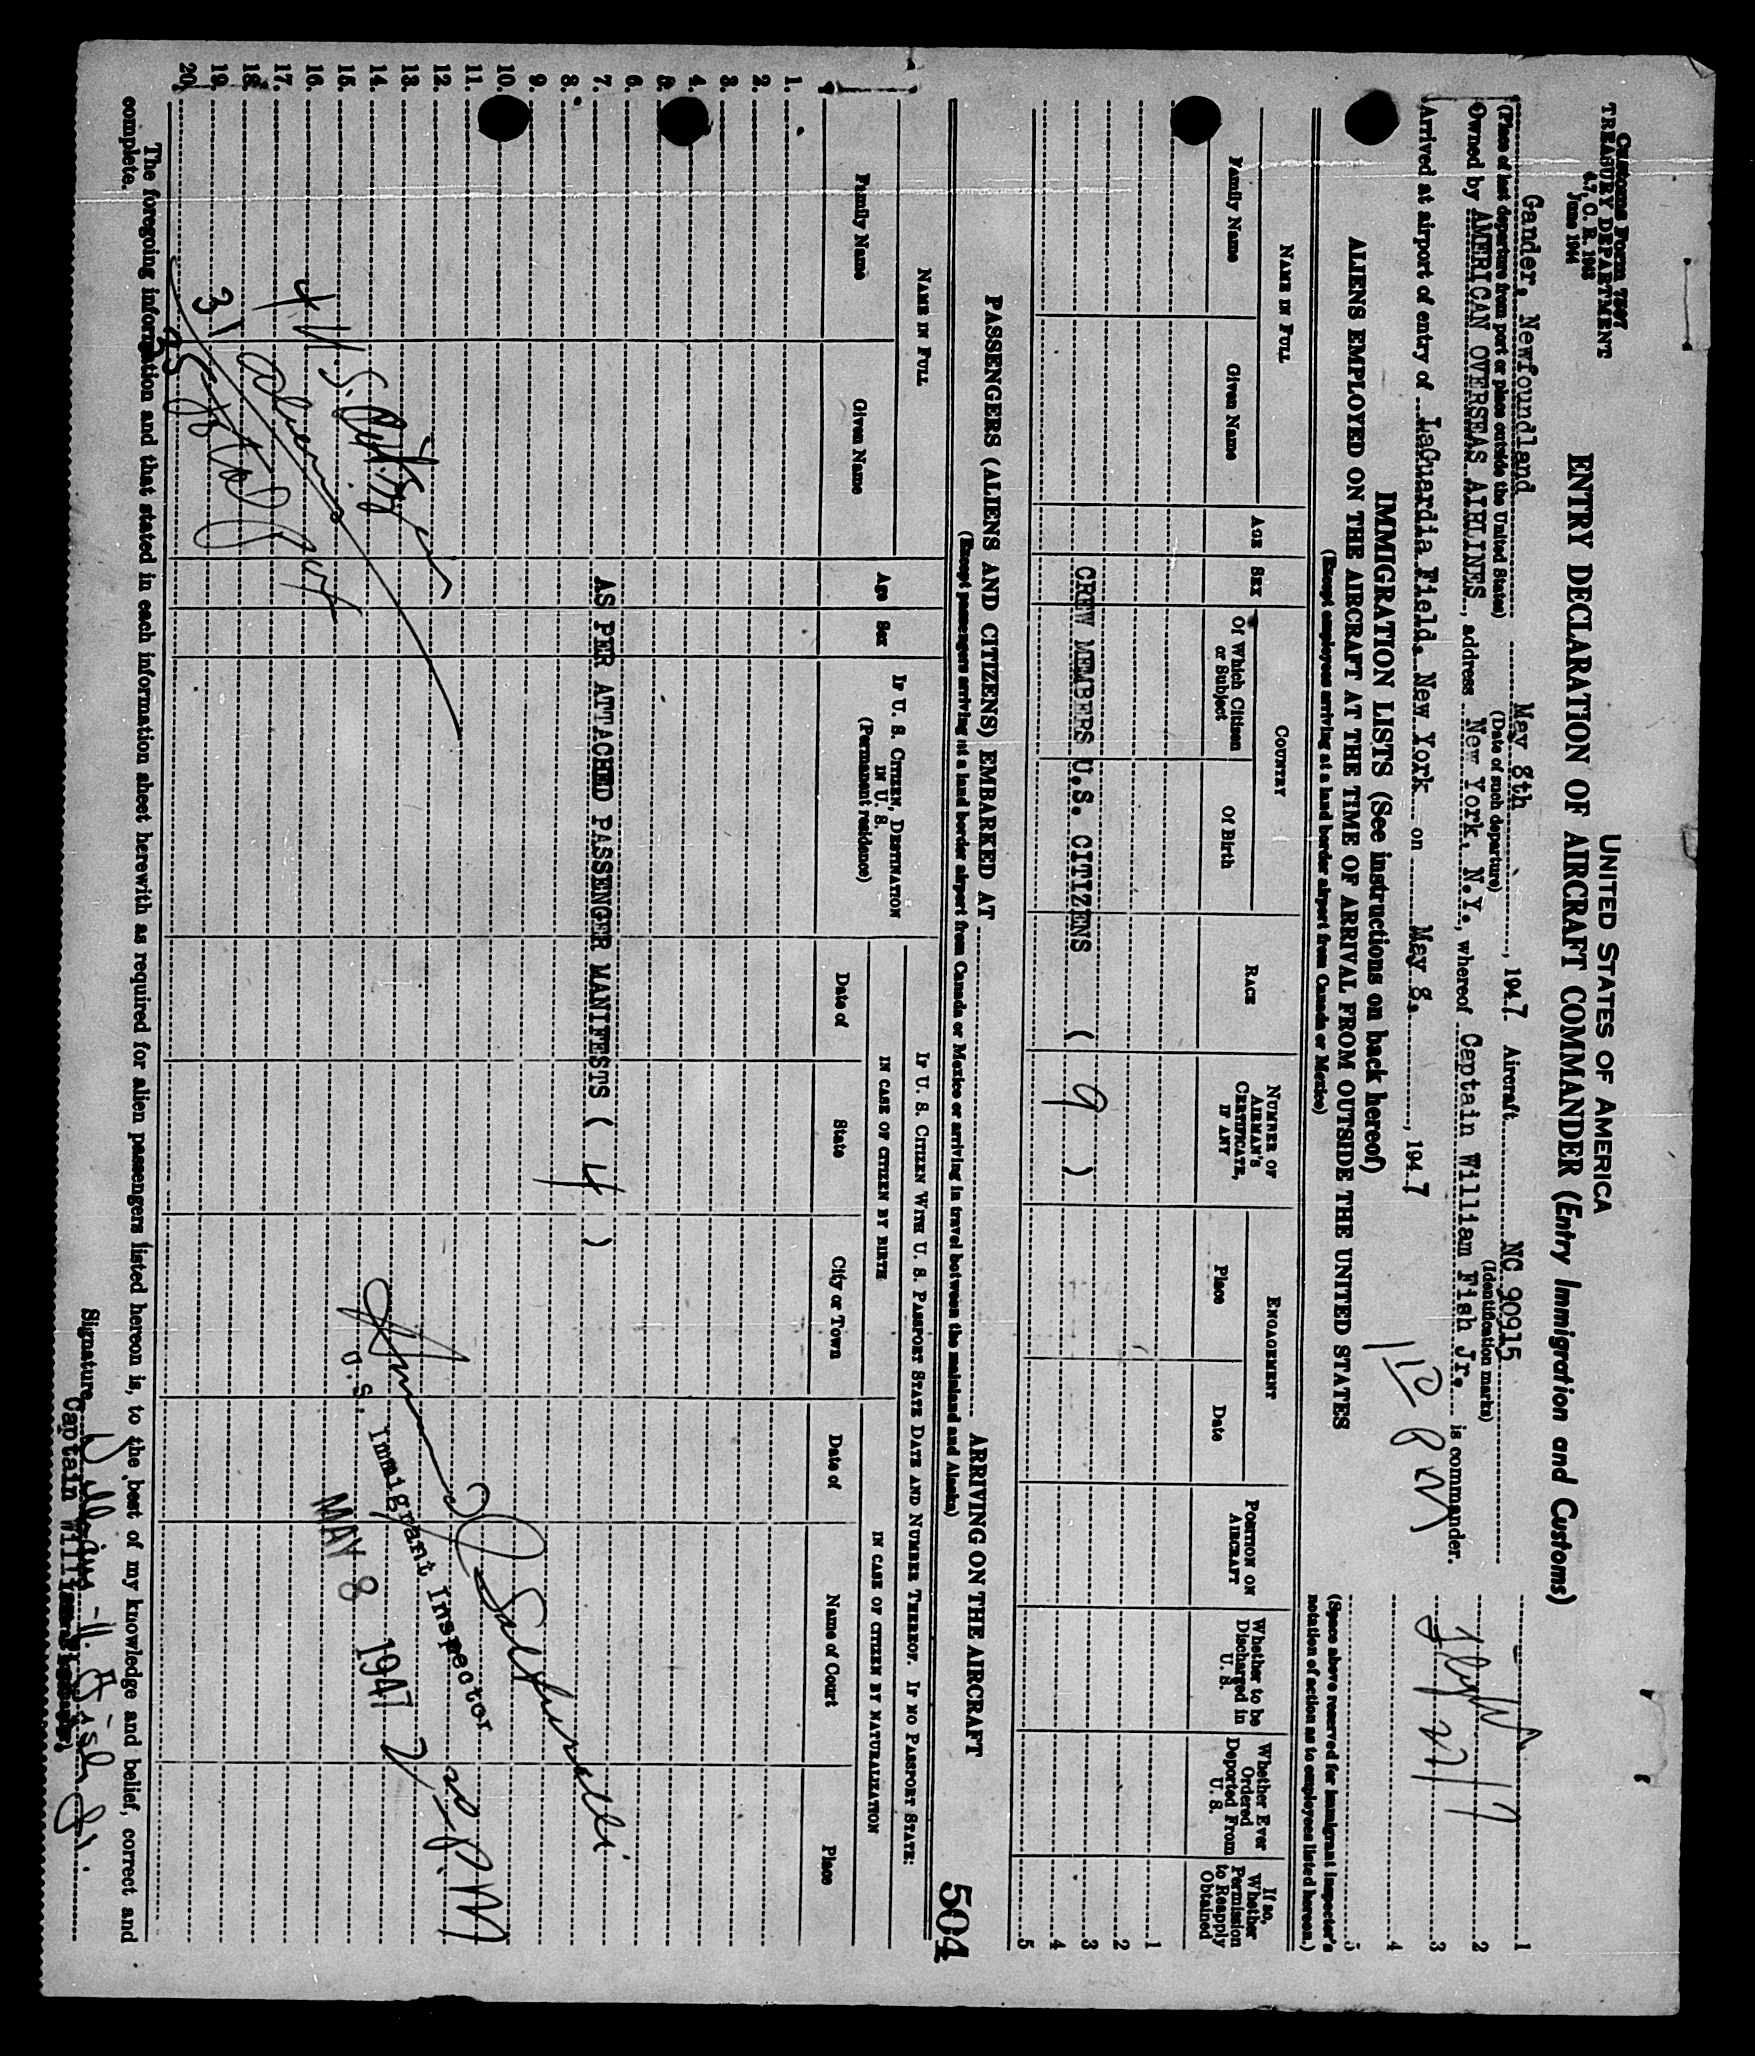 Customs Form 7507
TREASURY DEPARTMENT
4.7, C. R. 1943
June 1944
UNITED STATES OF AMERICA
ENTRY DECLARATION OF AIRCRAFT COMMANDER (Entry Immigration and Customs)
Gander, Newfoundland May 8th, 1947 Aircraft NC 90915
(Place of last departure from port or place outside the United States) (Date of such departure) (Identification marks)
Owned by AMERICAN OVERSEAS AIRLINES, address New York, N.Y., whereof Captain William Fish Jr. is commander.
Arrived at airport of entry of LaGuardia Field, New York on May 8, 1947
1 10 PM
Flight
1
2
3
4
5
(Space above reserved for immigrant inspector's notation of action as to employees listed hereon.)
IMMIGRATION LISTS (See instructions on back hereof)
ALIENS EMPLOYED ON THE AIRCRAFT AT THE TIME OF ARRIVAL FROM OUTSIDE THE UNITED STATES
(Except employees arriving at a land border airport from Canada or Mexico)
NAME IN FULL
Family Name
Given Name
AGE
SEX
COUNTRY
Of Which Citizen or Subject
Of Birth
RACE
NUMBER OF AIRMAN'S CERTIFICATE, IF ANY
ENGAGEMENT
Place
Date
POSITION ON AIRCRAFT
Whether to be Discharged in U. S.
Whether Ever Ordered Deported From U. S.
If so, Whether Permission to Reapply Obtained
1
2
CREW MEMBERS U.S. CITIZENS ( 9 ) 3
4
5
PASSENGERS (ALIENS AND CITIZENS) EMBARKED AT ARRIVING ON THE AIRCRAFT
504
(Except passengers arriving at a land border airport from Canada or Mexico or arriving in travel between the mainland and Alaska)
NAME IN FULL
Family Name
Given Name
Age
Sex
IF U. S. CITIZEN, DESTINATION IN U. S.
(Permanent residence)
IF U. S. CITIZEN WITH U. S. PASSPORT STATE DATE AND NUMBER THEREOF. IF NO PASSPORT STATE:
IN CASE OF CITIZEN BY BIRTH
IN CASE OF CITIZEN BY NATURALIZATION
Date of
State
City or Town
Date of
Name of Court
Place
1.
2.
3.
4.
5.
6.
7. AS PER ATTACHED PASSENGER MANIFESTS ( 4 )
8.
9.
10.
11.
12.
13.
14.
15.
16.
17.
18.
19.
20.
4 U.S.
31
U. S. Immigrant Inspector
MAY 8 1947
P.M
The foregoing information and that stated in each information sheet herewith as required for alien passengers listed hereon is, to the best of my knowledge and belief, correct and
complete.
Signature William H. Fish Jr.
Captain William